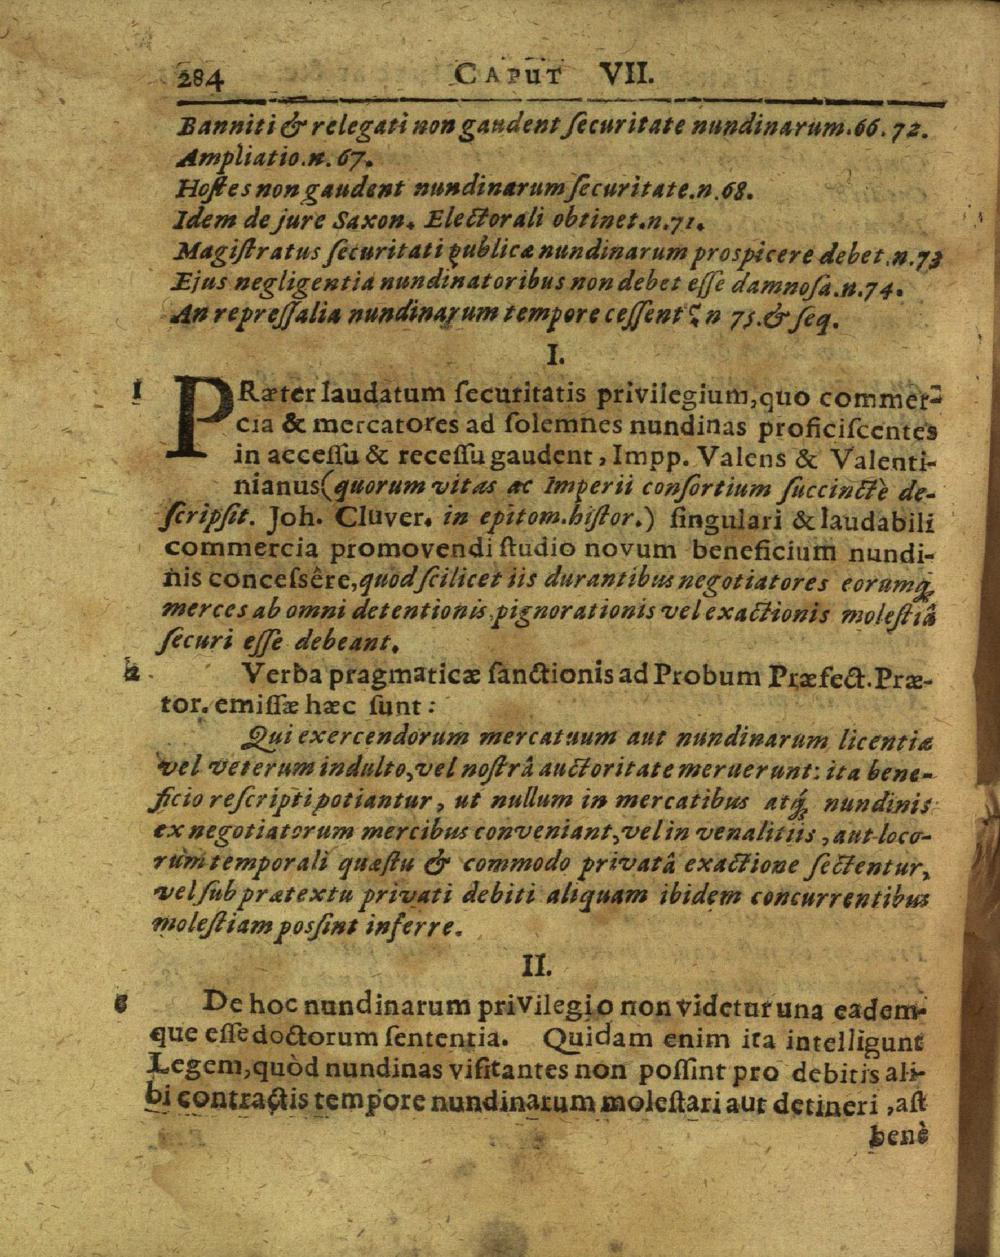 284 CAPUT VII.
Banniti & relegati non gaudent ſecuritate nundinarum.66. 72.
Ampliatio.n. 67.
Hoſtes non gaudent nundinarum ſecuritate.n.68.
Idem de jure Saxon. Electorali obtinet.n.71.
Magiſtratus ſecuritati publicæ nundinarum proſpicere debet.n.73
Ejus negligentia nundinatoribus non debet eſſe damnoſa.n.74.
An repreſſalia nundinarum tempore ceſſent? n 75.& ſeq.
I.
1 PRæter laudatum ſecuritatis privilegium,quo commer-
cia & mercatores ad ſolemnes nundinas proficiſcentes
in acceſſu & receſſu gaudent, Impp. Valens & Valenti-
nianus(quorum vitas ac Imperii conſortium ſuccinctè de-
ſcripſit. Joh. Cluver. in epitom.hiſtor.) ſingulari & laudabili
commercia promovendi ſtudio novum beneficium nundi-
nis conceſsêre,quod ſcilicet iis durantibus negotiatores eorumq́;
merces ab omni detentionis,pignorationis vel exactionis moleſtiâ
ſecuri eſſe debeant.
2. Verba pragmaticæ ſanctionis ad Probum Præfect.Præ-
tor. emiſſæ hæc ſunt:
Qui exercendorum mercatuum aut nundinarum licentia
vel veterum indulto,vel noſtrâ auctoritate meruerunt: ita bene-
ficio reſcripti potiantur, ut nullum in mercatibus atq́; nundinis
ex negotiatorum mercibus conveniant,vel in venalitiis, aut loco-
rum temporali quæſtu & commodo privatâ exactione ſectentur,
vel ſub prætextu privati debiti aliquam ibidem concurrentibus
moleſtiam poſſint inferre.
II.
De hoc nundinarum priVilegio non videtur una eadem-
que eſſe doctorum ſententia. Quidam enim ita intelligunt
Legem,quòd nundinas viſitantes non poſſint pro debitis ali-
bi contractis tempore nundinarum moleſtari aut detineri ,aſt
benè